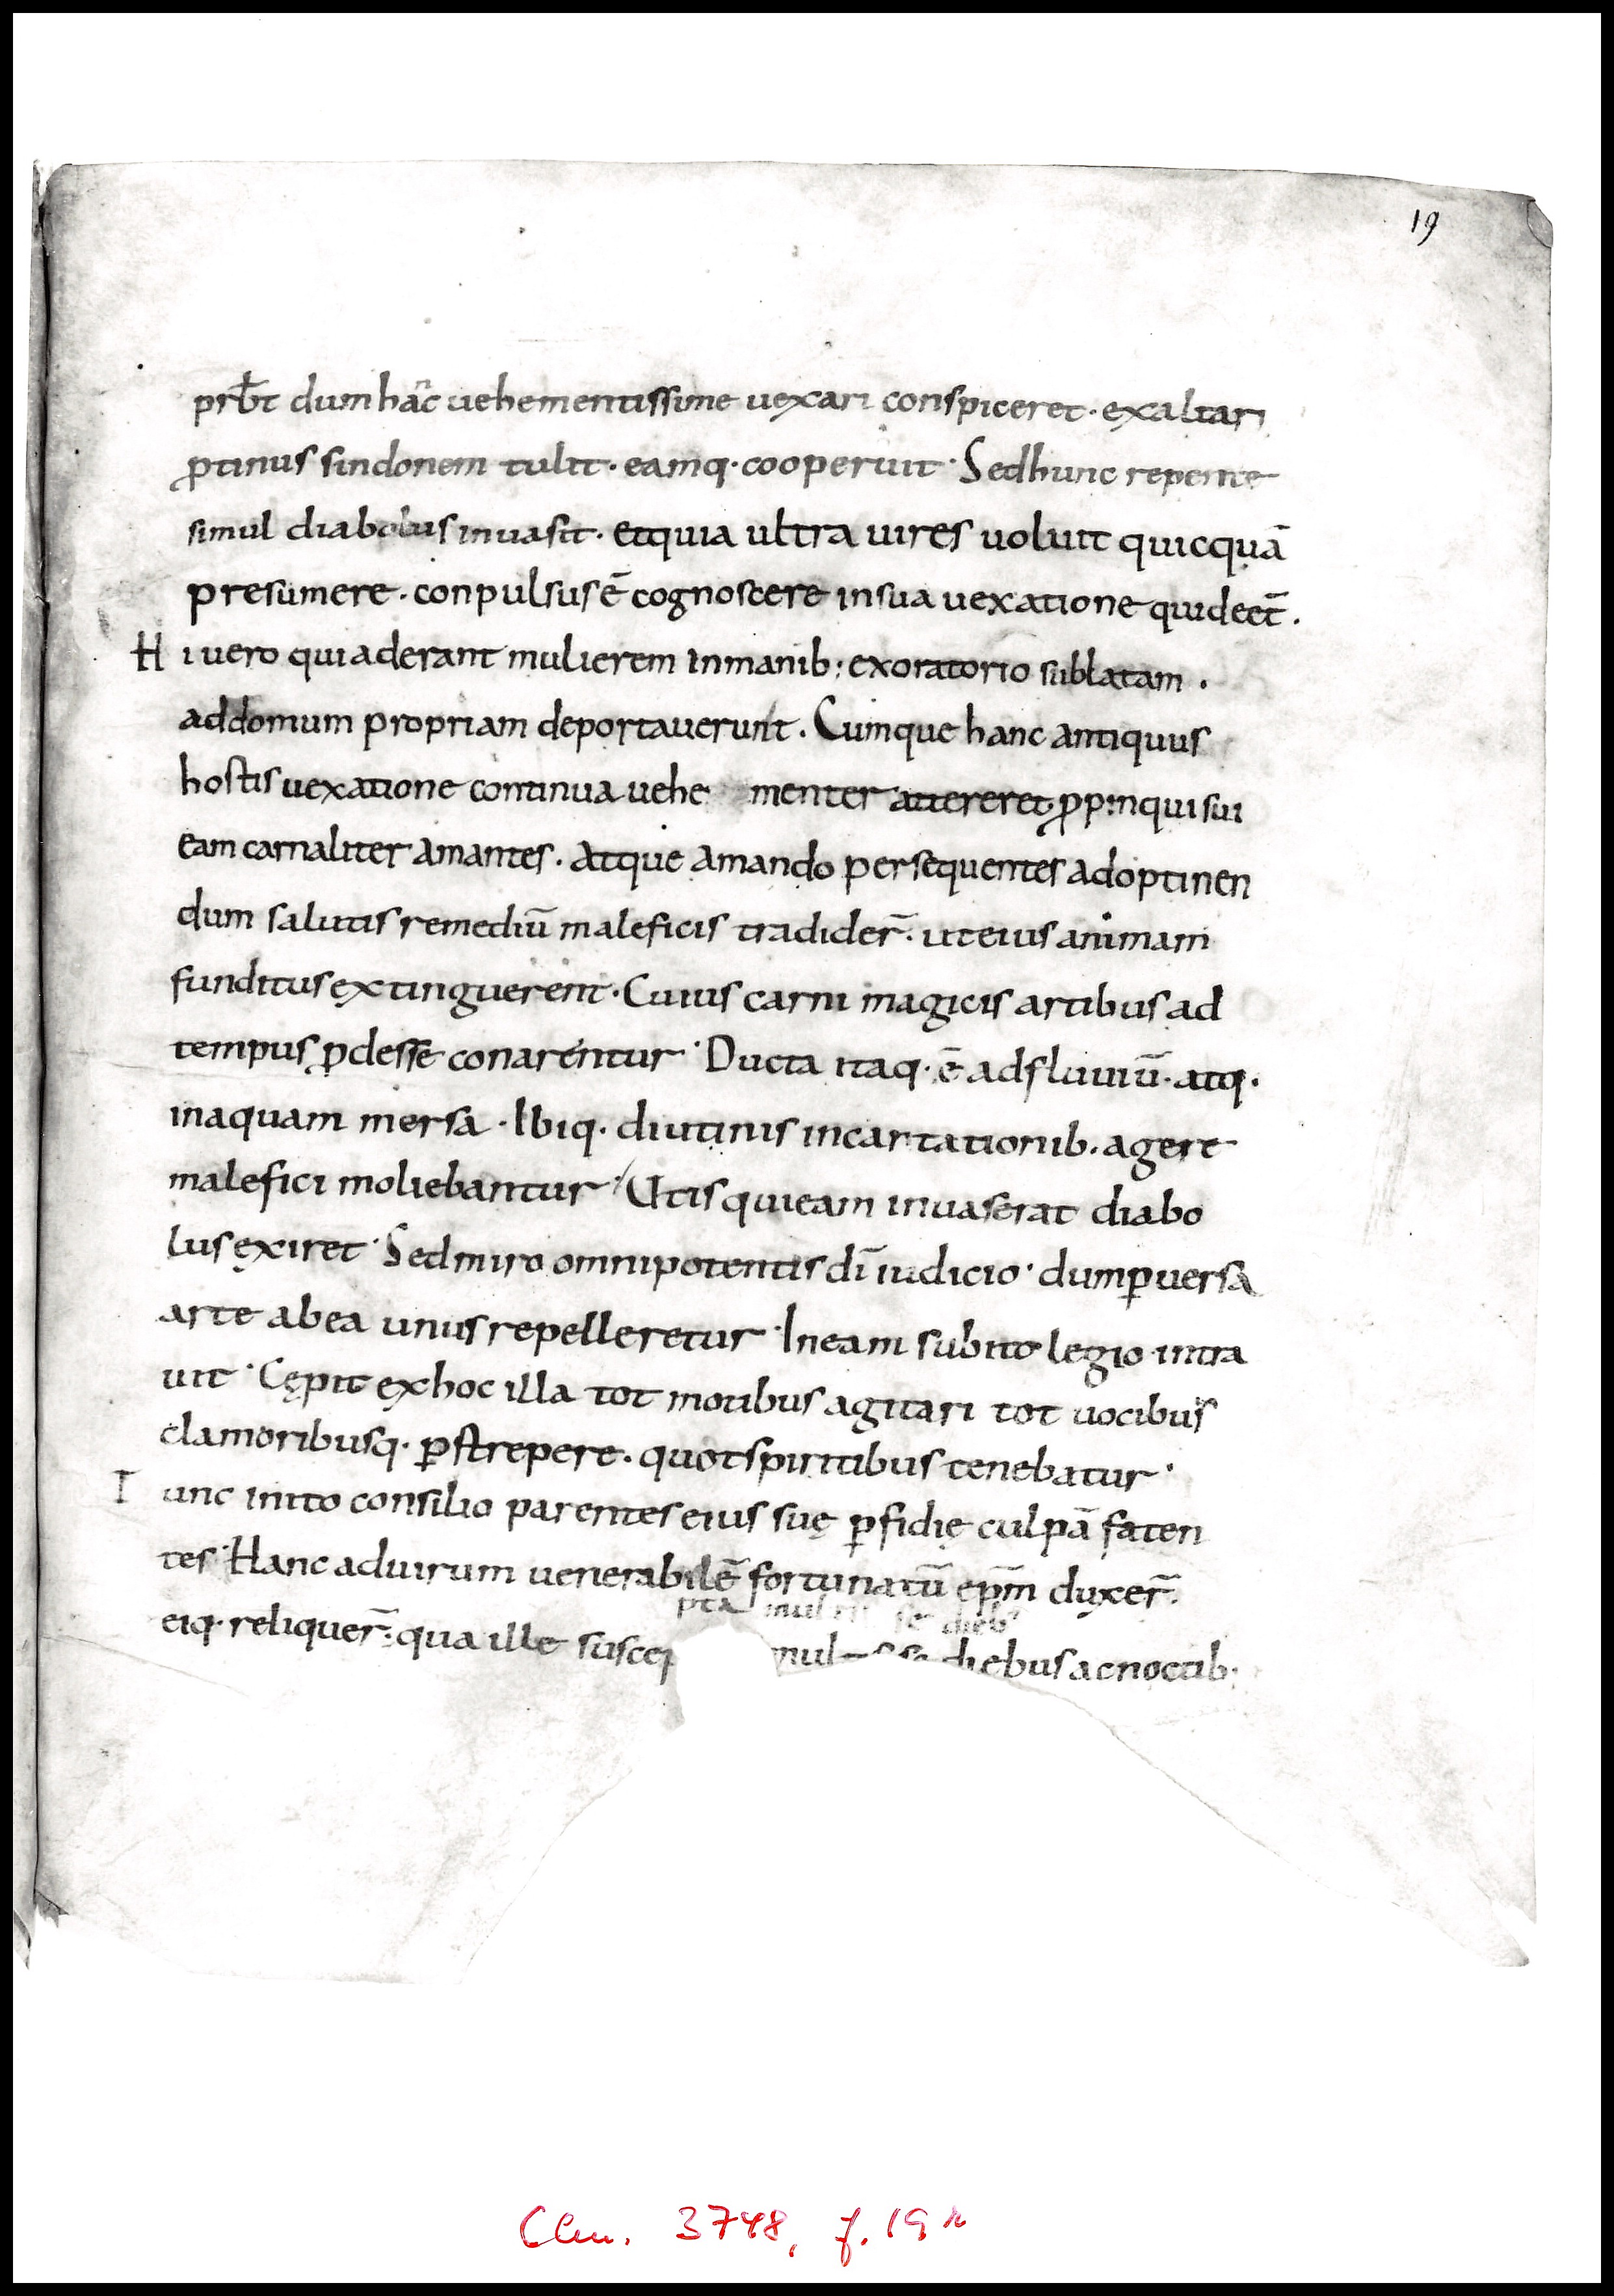 19
prb̄t dum hāc uehementissime uexari conspiceret · ex altari
ꝓtinus sindonem tulit · eamq· cooperuit · Sed hunc repente
simul diabolus inuasit · et quia ultra uires uoluit quicquā
presumere · conpulsus ē cognoscere in sua uexatione quid eēt ·
Hi uero qui aderant mulierem in manib: ex oratorio sublatam ·
ad domum propriam deportauerunt · Cumque hanc antiquus
hostis uexatione continua uehe menter attereret · ꝓpinqui sui
eam carnaliter amantes · atque amando persequentes ad optinen
dum salutis remediū maleficis tradider̄ · ut eius animam
funditus extinguerent · Cuius carni magicis artibus ad
tempus ꝓdesse conarentur · Ducta itaq· ē ad fluuiū · atq·
in aquam mersa · Ibiq· diutinis incartationib· agere
malefici moliebantur · Ut is qui eam inuaserat diabo
lus exiret · Sed miro omnipotentis dī iudicio · dum ꝑuersa
arte ab ea unus repelleretur · In eam subito legio intra
uit · Cępit ex hoc illa tot motibus agitari tot uocibus
clamoribusq· ꝑstrepere · quot spiritibus tenebatur ·
Tunc inito consilio parentes eius suę ꝑfidię culpā faten
tes · Hanc ad uirum uenerabilē fortunatū ep̄m duxer̄ ·
pta mul se dieb
eiq· reliquer̄ · qua ille suscep mul se diebus ac noctib·
Clm. 3748, f. 19r